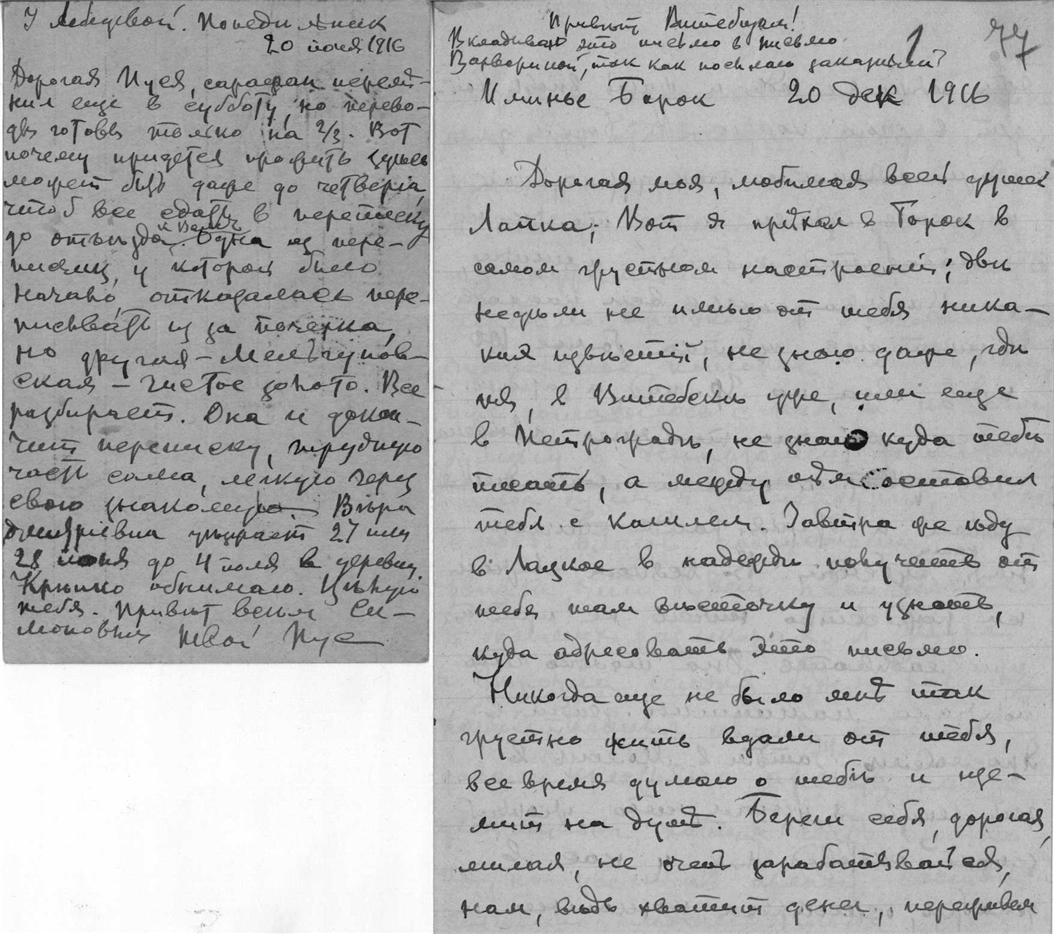 У Лебедевой. Понедѣльник
20 июня 1916
Дорогая Пуся, сарафан
еще в субботу, но перево-
ды готовы только на 2/3. Вот
почему придется прожить здѣсь
может быть даже до четверга,
чтоб все сдать в переписку
до отъѣзда. Одна из пере-
писчиц, у которой было
начато, отказалась пере-
писывать из за почерка,
но другая – Мельгунов-
ская – чистое золото. Все
разбирает. Она и докон-
чит переписку, трудную
часть сама, легкую через
свою знакомую. Вѣра
Дмитріевна уѣзжает 27 или
28 июня до 4 июля в деревню.
Крѣпко обнимаю. Цѣлую
тебя. Привѣт всѣм Си-
моновым Твой Пус
Привѣт Витебцам!
Вкладываю это письмо в письмо
Варвариной, так как посылаю заказным
1 77
Имѣнье Борок 20 дек 1916
Дорогая моя, любимая всей душой
Лапка; Вот я пріѣхал в Борок в
самом грустном настроеніи; двѣ
недѣли не имѣю от тебя ника-
ких извѣстій, не знаю даже, гдѣ
ты, в Витебскѣ уже, или еще
в Петроградѣ, не знаю куда тебѣ
писать, а между тѣм оставил
тебя с кашлем. Завтра же иду
в Лацкое в надеждѣ получить от
тебя там вѣсточку и узнать,
куда адресовать это письмо.
Никогда еще не было мнѣ так
грустно жить вдали от тебя,
все время думаю о тебѣ и ще-
мит на душѣ. Береги себя, дорогая,
милая, не очень зарабатывайся,
нам, вѣдь хватит денег, переживем